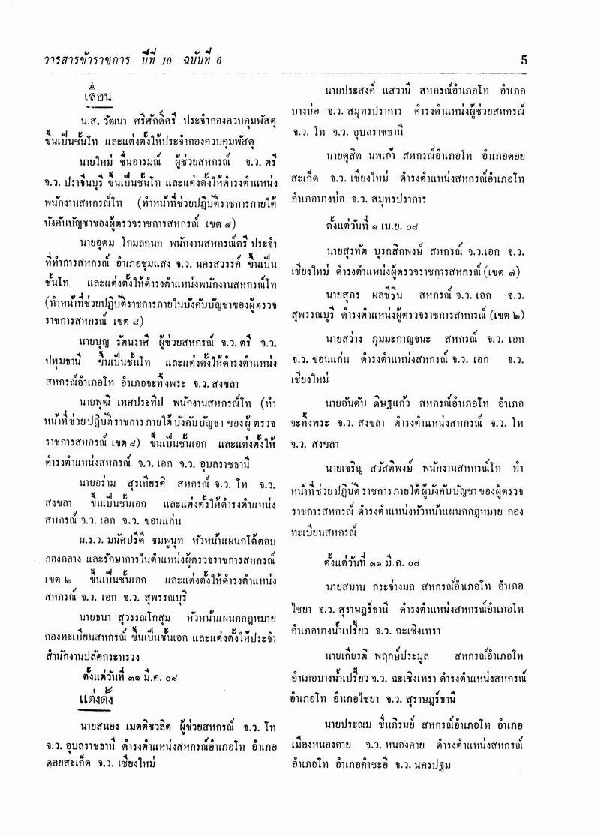 วารสารข้าราชการ ปีที่ 10 ฉบับที่ 6
5
เลื่อน
น.ส. วัฒนา ศรีศักดิ์ศรี ประจำกองควบคุมพัสดุ
ขึ้นเป็นชั้นโท และแต่งตั้งให้ประจำกองควบคุมพัสดุ
นายใหม่ ชื่นอารมณ์ ผู้ช่วยสหกรณ์ จ.ว. ตรี
จ.ว. ปราจีนบุรี ขึ้นเป็นชั้นโท และแต่งตั้งให้ดำรงตำแหน่ง
พนักงานสหกรณ์โท (ทำหน้าที่ช่วยปฏิบัติราชการภายใต้
บังคับบัญชาของผู้ตรวจราชการสหกรณ์ เขต ๑)
นายอุดม โกมลกนก พนักงานสหกรณ์ตรี ประจำ
ที่ทำการสหกรณ์ อำเภอชุมแสง จ.ว. นครสวรรค์ ขึ้นเป็น
ชั้นโท และแต่งตั้งให้ดำรงตำแหน่งพนักงานสหกรณ์โท
(ทำหน้าที่ช่วยปฏิบัติราชการภายในบังคับบัญชาของผู้ตรวจ
ราชการสหกรณ์ เขต ๘)
นายบุญ รัตนราศี ผู้ช่วยสหกรณ์ จ.ว. ตรี จ.ว.
ปทุมธานี ขึ้นเป็นชั้นโท และแต่งตั้งให้ดำรงตำแหน่ง
สหกรณ์อำเภอโท อำเภอจะทิ้งพระ จ.ว. สงขลา
นายพุฒิ เทศประทีป พนักงานสหกรณ์โท (ทำ
หน้าที่ช่วยปฏิบัติราชการภายใต้บังคับบัญชา ของผู้ตรวจ
ราชการสหกรณ์ เขต ๔) ขึ้นเป็นชั้นเอก และแต่งตั้งให้
ดำรงตำแหน่งสหกรณ์ จ.ว. เอก จ.ว. อุบลราชธานี
นายอร่าม สุรเทียรศิ สหกรณ์ จ.ว. โท จ.ว.
สงขลา ขึ้นเป็นชั้นเอก และแต่งตั้งให้ดำรงตำแหน่ง
สหกรณ์ จ.ว. เอก จ.ว. ขอนแก่น
ม.ร.ว. มนัศปรีดี ชมพูนุท หัวหน้าแผนกโต้ตอบ
กองกลาง และรักษาการในตำแหน่งผู้ตรวจราชการสหกรณ์
เขต ๒ ขึ้นเป็นชั้นเอก และแต่งตั้งให้ดำรงตำแหน่ง
สหกรณ์ จ.ว. เอก จ.ว. สุพรรณบุรี
นายธนา สุวรรณโกสุม หัวหน้าแผนกกฎหมาย
กองทะเบียนสหกรณ์ ขึ้นเป็นชั้นเอก และแต่งตั้งให้ประจำ
สำนักงานปลัดกระทรวง
ตั้งแต่วันที่ ๓๑ มี.ค. ๐๘
แต่งตั้ง
นายสนอง เมตติชวลิต ผู้ช่วยสหกรณ์ จ.ว. โท
จ.ว. อุบลราชธานี ดำรงตำแหน่งสหกรณ์อำเภอโท อำเภอ
ดอยสะเก็ด จ.ว. เชียงใหม่
นายประสงค์ แสวานี สหกรณ์อำเภอโท อำเภอ
บางบ่อ จ.ว. สมุทรปราการ ดำรงตำแหน่งผู้ช่วยสหกรณ์
จ.ว. โท จ.ว. อุบลราชธานี
นายดุสิต นพเก้า สหกรณ์อำเภอโท อำเภอดอย
สะเก็ด จ.ว. เชียงใหม่ ดำรงตำแหน่งสหกรณ์อำเภอโท
อำเภอบางบ่อ จ.ว. สมุทรปราการ
ตั้งแต่วันที่ ๑ เม.ย. ๐๘
นายสุรทัต บูรกสิกพงษ์ สหกรณ์ จ.ว.เอก จ.ว.
เชียงใหม่ ดำรงตำแหน่งผู้ตรวจราชการสหกรณ์ (เขต ๗)
นายสุกร ผลชีวิน สหกรณ์ จ.ว. เอก จ.ว.
สุพรรณบุรี ดำรงตำแหน่งผู้ตรวจราชการสหกรณ์ (เขต ๒)
นายสว่าง ภุมมะกาญจนะ สหกรณ์ จ.ว. เอก
จ.ว. ขอนแก่น ดำรงตำแหน่งสหกรณ์ จ.ว. เอก จ.ว.
เชียงใหม่
นายอันดับ ดิษฐแก้ว สหกรณ์อำเภอโท อำเภอ
จะทิ้งพระ จ.ว. สงขลา ดำรงตำแหน่งสหกรณ์ จ.ว. โท
จ.ว. สงขลา
นายเจริญ สวัสดิพงษ์ พนักงานสหกรณ์โท ทำ
หน้าที่ช่วยปฏิบัติราชการภายใต้ผู้บังคับบัญชาของผู้ตรวจ
ราชการสหกรณ์ ดำรงตำแหน่งหัวหน้าแผนกกฎหมาย กอง
ทะเบียนสหกรณ์
ตั้งแต่วันที่ ๓๑ มี.ค. ๐๘
นายสมาน กระจ่างมล สหกรณ์อำเภอโท อำเภอ
ไชยา จ.ว. สุราษฎร์ธานี ดำรงตำแหน่งสหกรณ์อำเภอโท
อำเภอบางน้ำเปรี้ยว จ.ว. ฉะเชิงเทรา
นายเกียรติ พฤกษ์ประมูล สหกรณ์อำเภอโท
อำเภอบางน้ำเปรี้ยว จ.ว. ฉะเชิงเทรา ดำรงตำแหน่งสหกรณ์
อำเภอโท อำเภอไชยา จ.ว. สุราษฎร์ธานี
นายประถม ชื่นภิรมย์ สหกรณ์อำเภอโท อำเภอ
เมืองหนองคาย จ.ว. หนองคาย ดำรงตำแหน่งสหกรณ์
อำเภอโท อำเภอคำชะอี จ.ว. นครปฐม